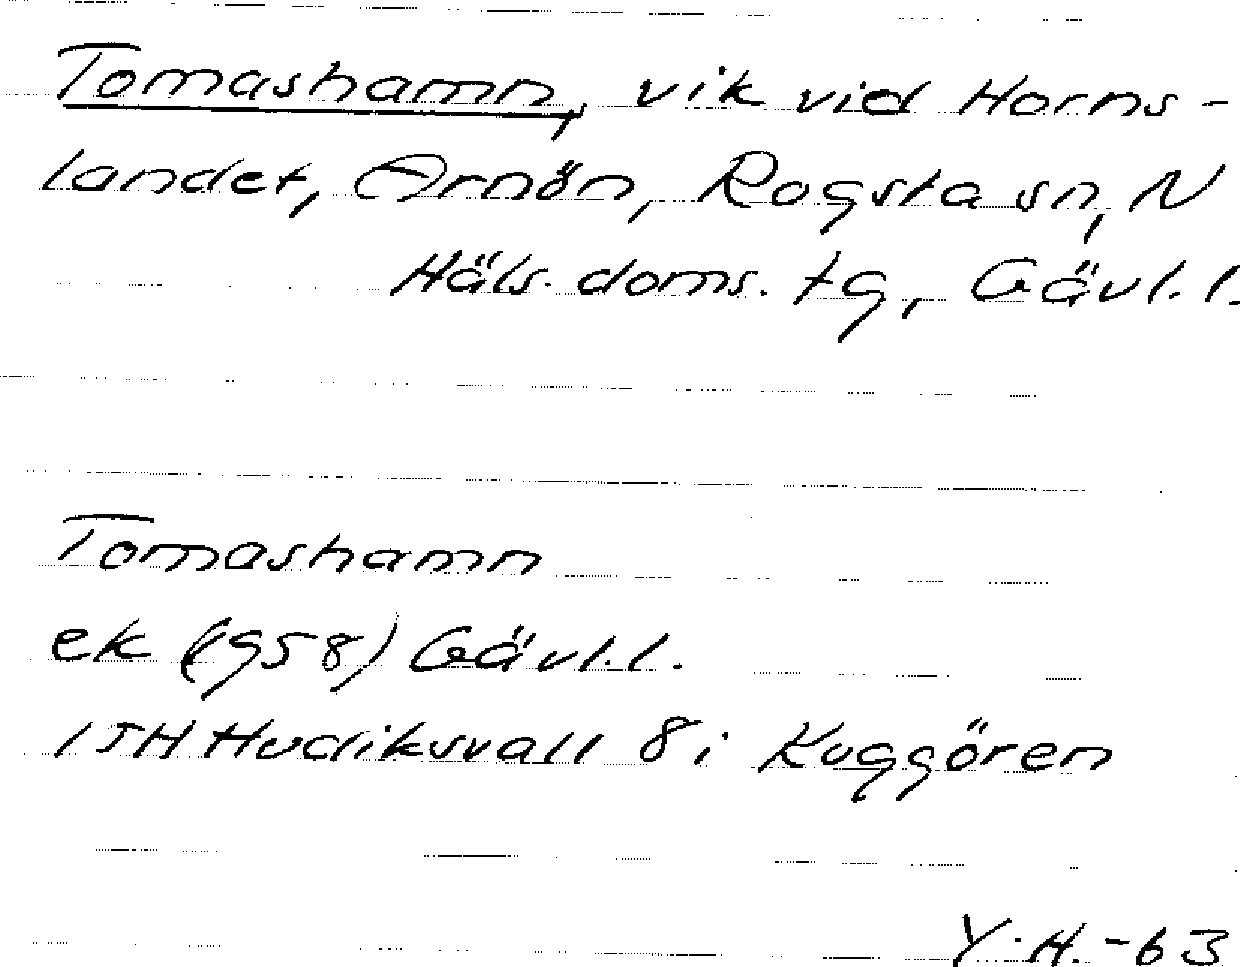 Tomashamn, vik vid Horns-
landet, Arnön, Rogsta sn, N
Häls. doms. tg, Gävl. l.
Tomashamn
ek (1958) Gävl. l.
15H Hudiksvall 8 i Kuggören
Y. H. -63